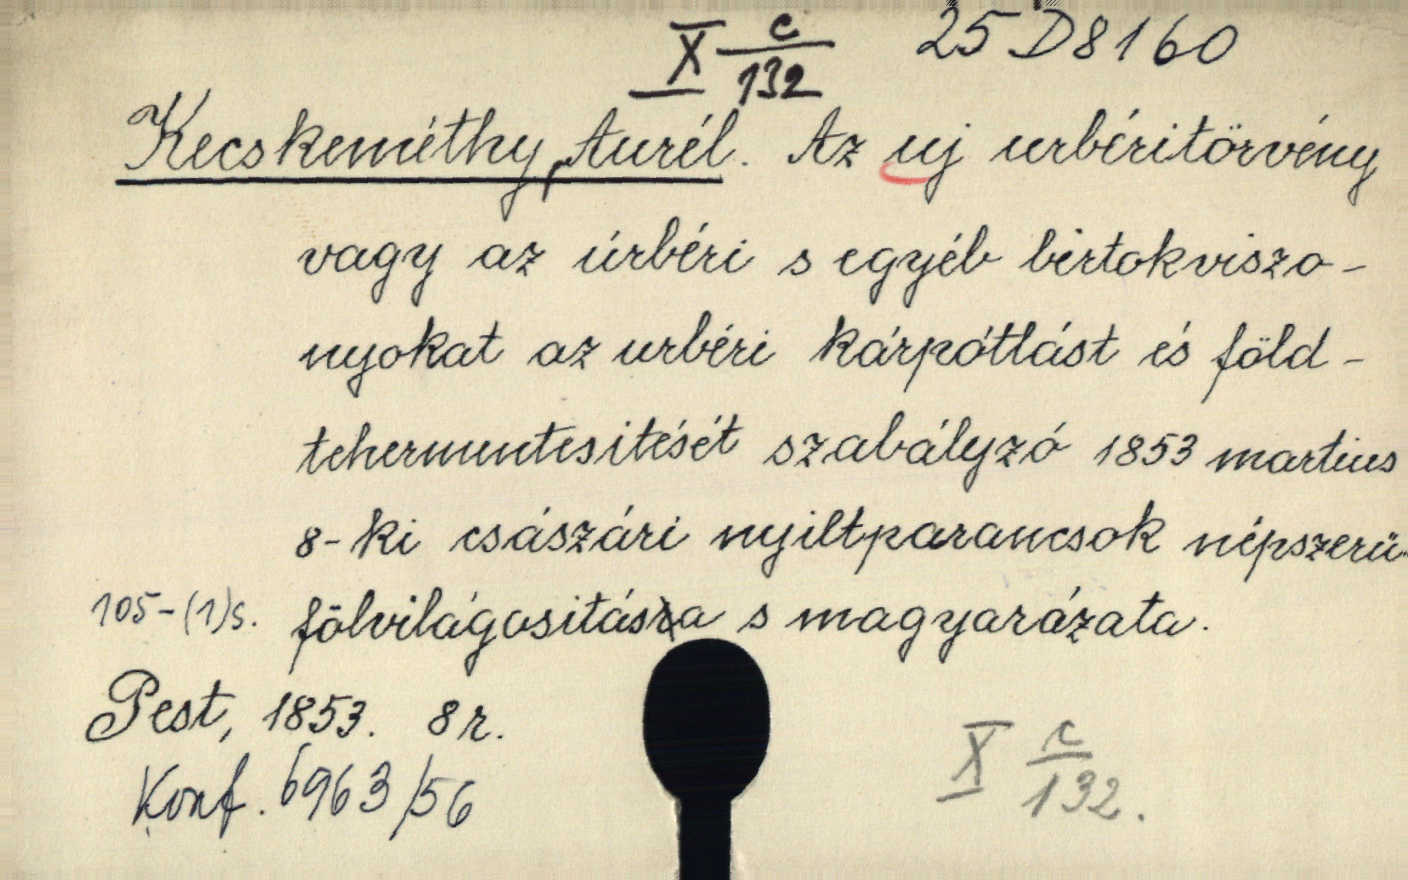 X c/132 25 D 8160
Kecskeméthy, Aurél. Az uj urbéritörvény
vagy az úrbéri s egyéb birtokviszo-
nyokat az urbéri kárpótlást és föld-
tehermentesitését szabályzó 1853 martius
8-ki császári nyiltparancsok népszerü
105-(1)s. fölvilágositása s magyarázata.
Pest, 1853. 8r.
Konf. 6963/56
X c/132.